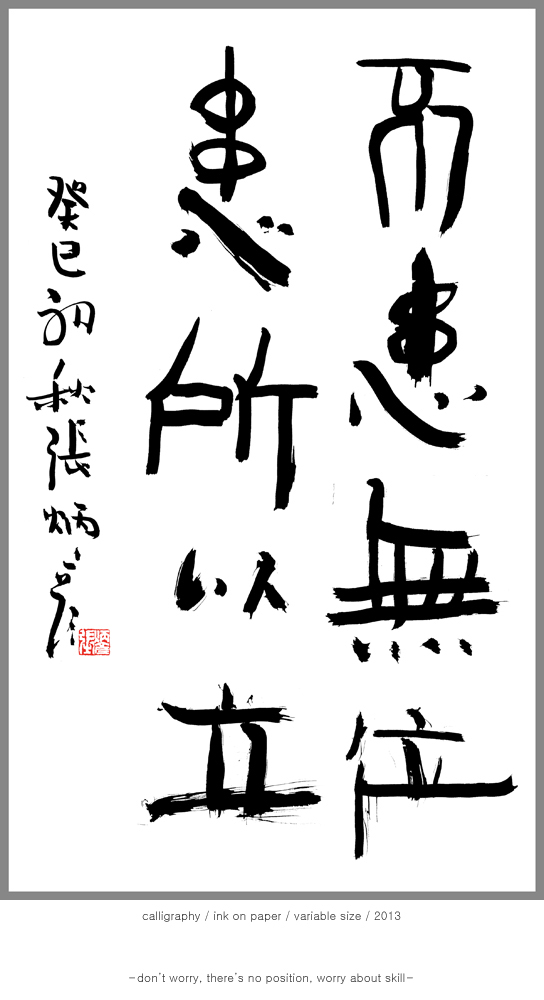 不患無位
患所以立
癸巳初秋張炳
calligraphy / ink on paper / variable size / 2013
-don't worry, there's no position, worry about skill-